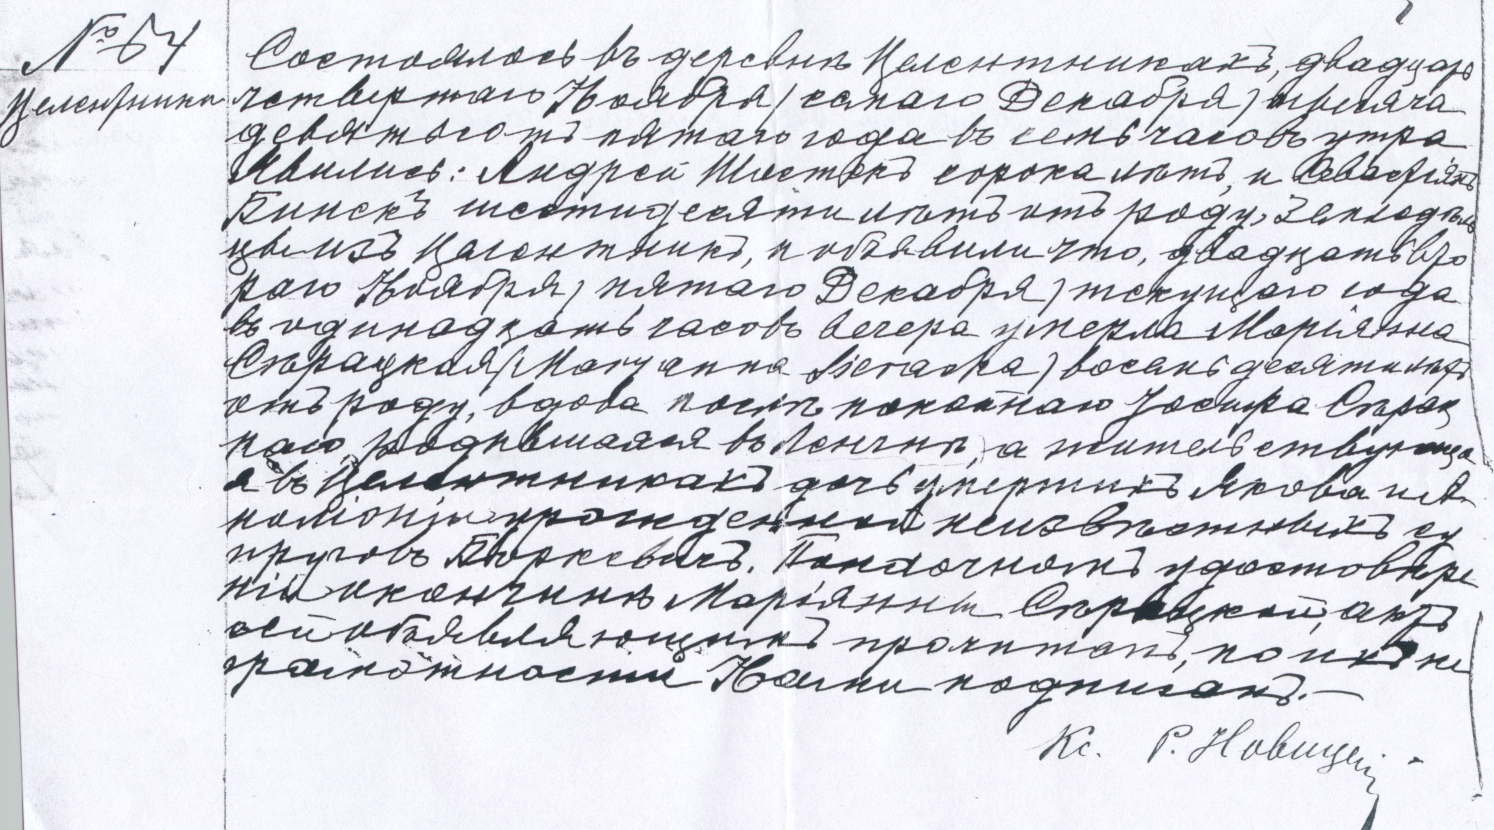 № 54
Целентники
Состоялось въ деревнѣ Целентникахъ, двадцать
четвертаго Ноября (седмаго Декабря) тысяча
девятьсотъ пятаго года въ семь часовъ утра
Явились: Андрей Шостекъ сорока лѣтъ, и
шестидесяти лѣтъ отъ роду, Земледѣль
цы изъ Целентникъ, и объявили что, двадцать вто
раго Ноября (пятаго Декабря) текущаго года
въ одинадцать часовъ вечера умерла Маріянна
Сѣрацкая (Maryanna Sieracka) восемьдесяти лѣтъ
отъ роду, вдова послѣ покойнаго Іосифа Сѣрац
каго, родившаяся въ а жительствующа
я въ Целентникахъ дочь умершихъ Якова и А
полоніи урожденной неизвѣстныхъ су
пруговъ По наочномъ удостовѣре
ніи о кончинѣ Маріянны Сѣрацкой, актъ
сей объявляющимъ прочитанъ, по ихъ не
грамотности Нами подписанъ.—
Кс. Р. Новицкій